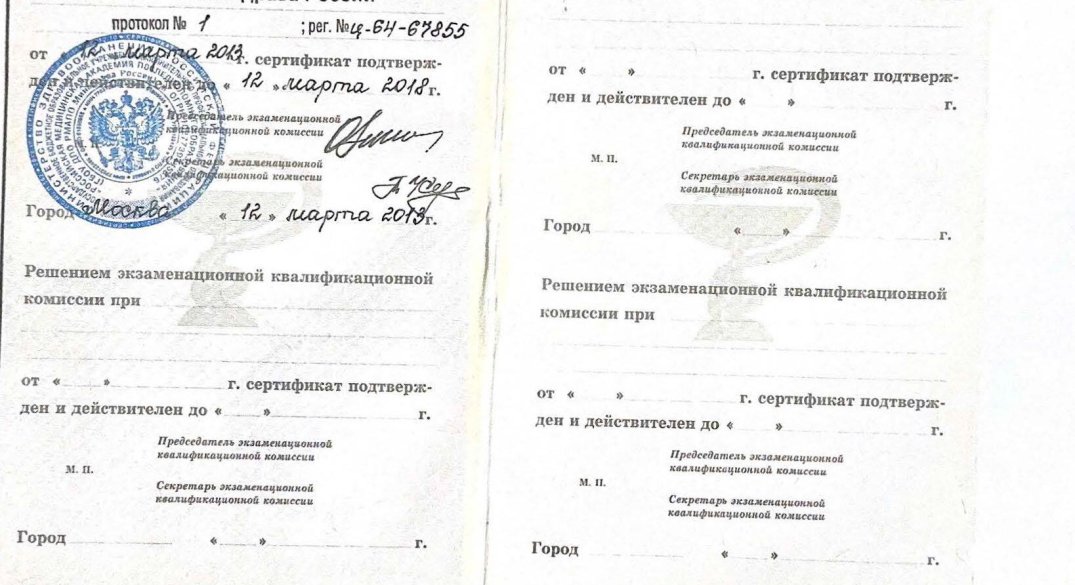 протокол № 1 ; рег. № ц-64-67855
от « 12 » марта 2013 г. сертификат подтверж-
ден и действителен до « 12 » марта 2018 г.
Председатель экзаменационной
квалификационной комиссии
Секретарь экзаменационной
квалификационной комиссии
Город Москва « 12 » марта 2013 г.
Решением экзаменационной квалификационной
комиссии при
от « » г. сертификат подтверж-
ден и действителен до « » г.
Председатель экзаменационной
квалификационной комиссии
М. П.
Секретарь экзаменационной
квалификационной комиссии
Город « » г.
от « » г. сертификат подтверж-
ден и действителен до « » г.
Председатель экзаменационной
квалификационной комиссии
М. П.
Секретарь экзаменационной
квалификационной комиссии
Город « » г.
Решением экзаменационной квалификационной
комиссии при
от « » г. сертификат подтверж-
ден и действителен до « » г.
Председатель экзаменационной
квалификационной комиссии
М. П.
Секретарь экзаменационной
квалификационной комиссии
Город « » г.